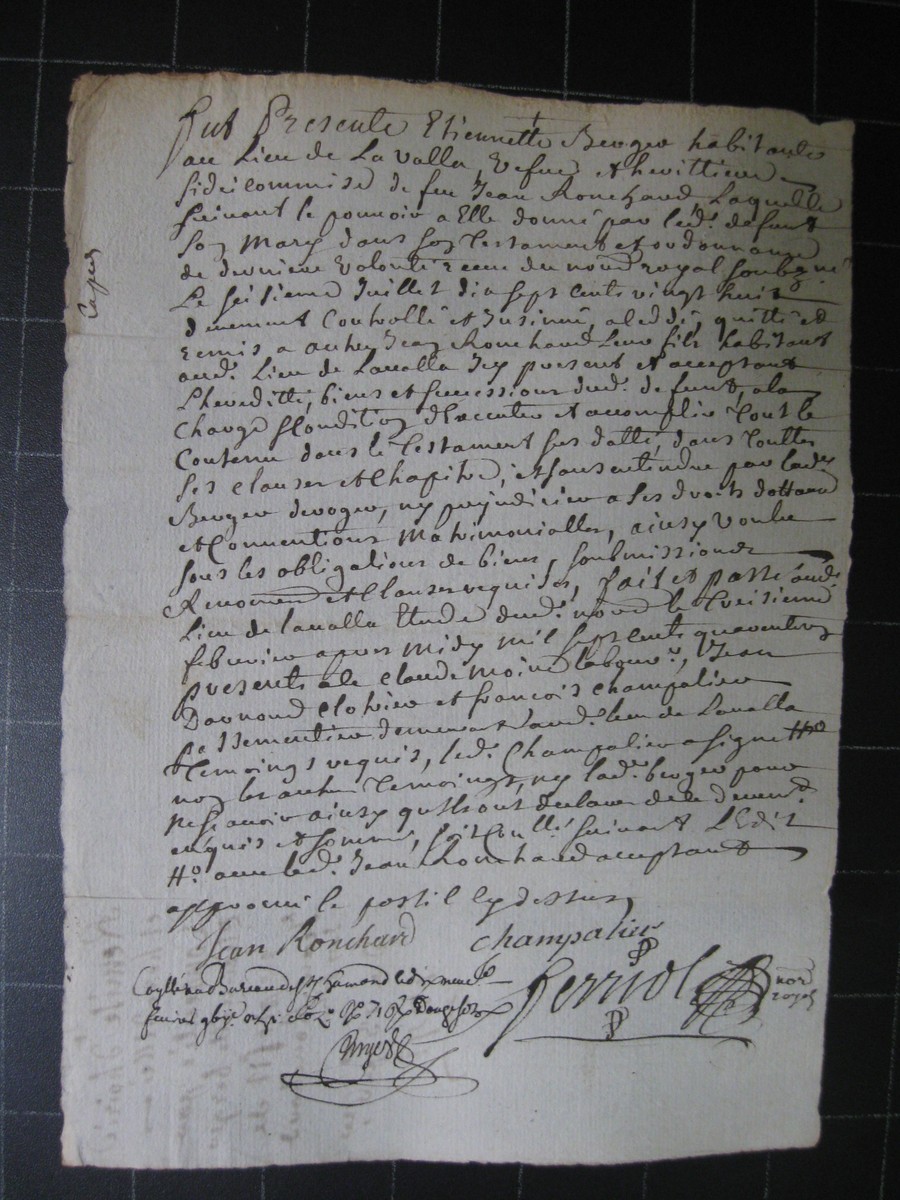 Fut Presente Etiennette Berger habitante
au Lieu de La Valla, vefue et herittiere
fideicommise de feu Jean Ronchard, Laquelle
suivant le pouvoir a Elle donné par led. defunt
son Mary dans son Testament et ordonnance
de derniere volonté receu du nore royal soubsigné
Le seisieme Juillet dix sept cents vingt huit
deuement Controllé et Insinué, a ceddé, quitté et
remis a autre Jean Ronchard leur fils habitant
aud. Lieu de Lavalla Icy present et acceptant
Lheredité, biens et successions dud. defunt, a la
charge & Condition d'Executer et accomplir tout le
Contenu dans le Testament sus datté, dans touttes
ses clauses et Chapitre, et sans entendre par lade
Berger deroger, ny prejudicier a ses droits dottaux
et Conventions Matrimonialles, ainsy voulu
sous les obligations de biens, soubmissions
Renoncions et Clauses requises, fait et passé aud.
Lieu de lavalla Etude dud. nore le treisieme
febvrier apres midy mil sept cents quarente
presents a ce claude moine labour., Jean
clotrier et francois champalier
passementier demeurants aud. lieu de Lavalla
temoings requis, led. Champalier a signé #
non les autres temoings, ny lade berger pour
ne sçavoir ainsy qu'ils ont declaré de ce deuemt.
enquis et sommé, soit Conllé. suivant L'Edit
# avec led. Jean Ronchard acceptant
approuvé le postil cy dessus
Jean Ronchard champalier
Perriol nore royal